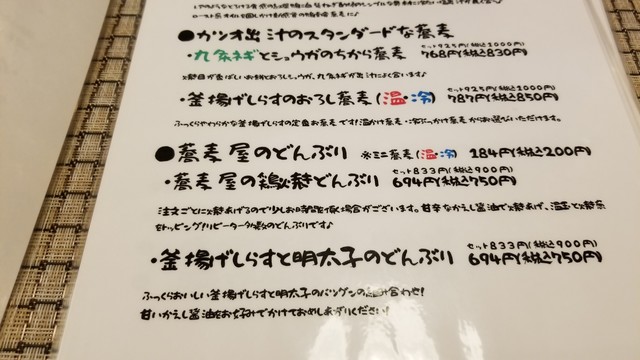 ●カツオ出汁のスタンダードな蕎麦
・九条ネギとショウガのちから蕎麦 セット925円(税込1000円)
768円(税込830円)
・釜揚げしらすのおろし蕎麦(温・冷) セット925円(税込1000円)
787円(税込850円)
ふっくらやわらかな釜揚げしらすの定番お蕎麦です!温かけ蕎麦・冷ぶっかけ蕎麦からお選びいただけます。
●蕎麦屋のどんぶり ※ミニ蕎麦(温・冷) 184円(税込200円)
・蕎麦屋の鶏竜田どんぶり セット833円(税込900円)
694円(税込750円)
注文ごとに揚げるので少しお時間を頂く場合がございます。甘辛なかえし醤油で
トッピング!リピーター多数のどんぶりです♪
・釜揚げしらすと明太子のどんぶり セット833円(税込900円)
694円(税込750円)
ふっくらおいしい釜揚げしらすと明太子のバツグンの組み合わせ!
甘いかえし醤油をお好みでかけておめしあがりください!